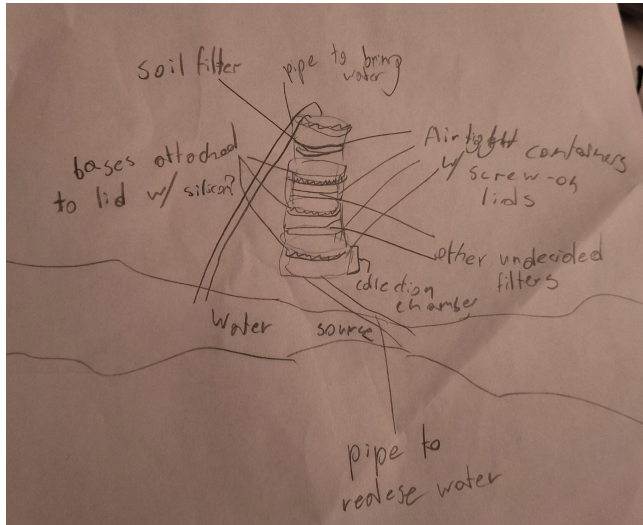 soil filter
pipe to bring
water
Airtight containers
w/ screw-on
lids
bases attached
to lid w/ silicon?
other undecided
filters
colection
chamber
Water source
pipe to
realese water